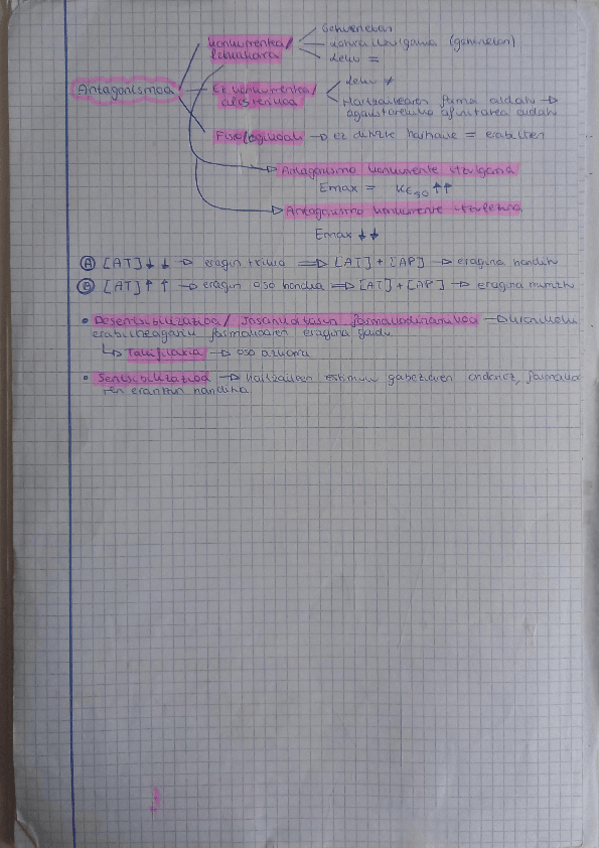 Gehienetan
Konkurrentea/
lehiakorra
itzulgarria (gehienetan)
Leku =
Antagonismoa
Ez konkurrentea/
alosterikoa
Leku ≠
Hartzailearen forma aldatu →
agonistarekiko afinitatea aldatu
Fisiologikoak → ez dituzte hartzaile = erabiltzen
Antagonismo konkurrente itzulgarria
Emax = KE50 ↑↑
Antagonismo konkurrente itzulezina
Emax ↓↓
Ⓐ [AT] ↓ ↓ → eragin txikia ⟹ [AT] + [AP] → eragina handitu
Ⓑ [AT] ↑ ↑ → eragin oso handia ⟹ [AT] + [AP] → eragina murriztu
• Desentsibilizatioa / Tolerantzia farmakodinamikoa → kronikoki
erabiltzeagatik farmakoaren eragina galdu
↳ Takifilaxia → oso azkarra
• Sentsibilizazioa → hartzaileen estimulu gabeziaren ondorioz, farmakoa
ren erantzun handitua